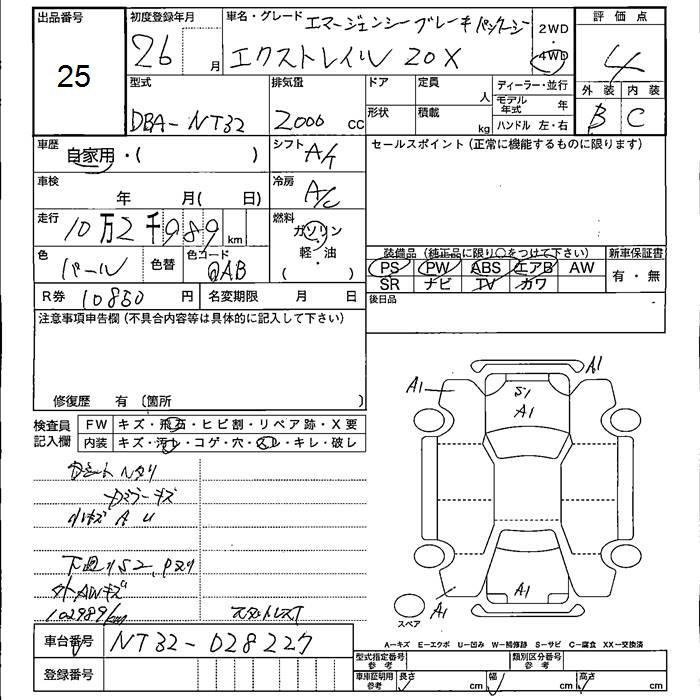 出品番号
25
初度登録年月
26 月
車名・グレード エマージェンシーブレーキパッケージ
エクストレイル 20X
2WD
・
4WD
評価点
4
外装 内装
B C
型式
DBA-NT32
排気量
2000 cc
ドア
定員
人
形状
積載
kg
ディーラー・並行
モデル年式 年
ハンドル 左・右
車歴
自家用・( )
シフト
A/T
セールスポイント(正常に機能するものに限ります)
車検
年 月( 日)
冷房
A/C
走行
10万2千989 km
燃料
ガソリン
・
軽・油
( )
色
パール
色替
色コード
QAB
装備品(純正品に限り○をつけて下さい)
新車保証書
PS PW ABS エアB AW
有・無
SR ナビ TV カワ
R券 10850 円
名変期限 月 日
後日品
注意事項申告欄(不具合内容等は具体的に記入して下さい)
修復歴 有(箇所 )
検査員
記入欄
FW キズ・飛石・ヒビ割・リペア跡・X要
内装 キズ・汚レ・コゲ・穴・スレ・キレ・破レ
小キズ A U
外AWキズ
102989km
スタットレスT
A1
A1
S1
A1
A1
A1
スペア
A-キズ E-エクボ U-凹み W-補修跡 S-サビ C-腐食 XX-交換済
車台番号 NT32-028227
登録番号
型式指定番号
参考
類別区分番号
参考
車庫証明用
参考
長さ cm 幅 cm 高さ cm